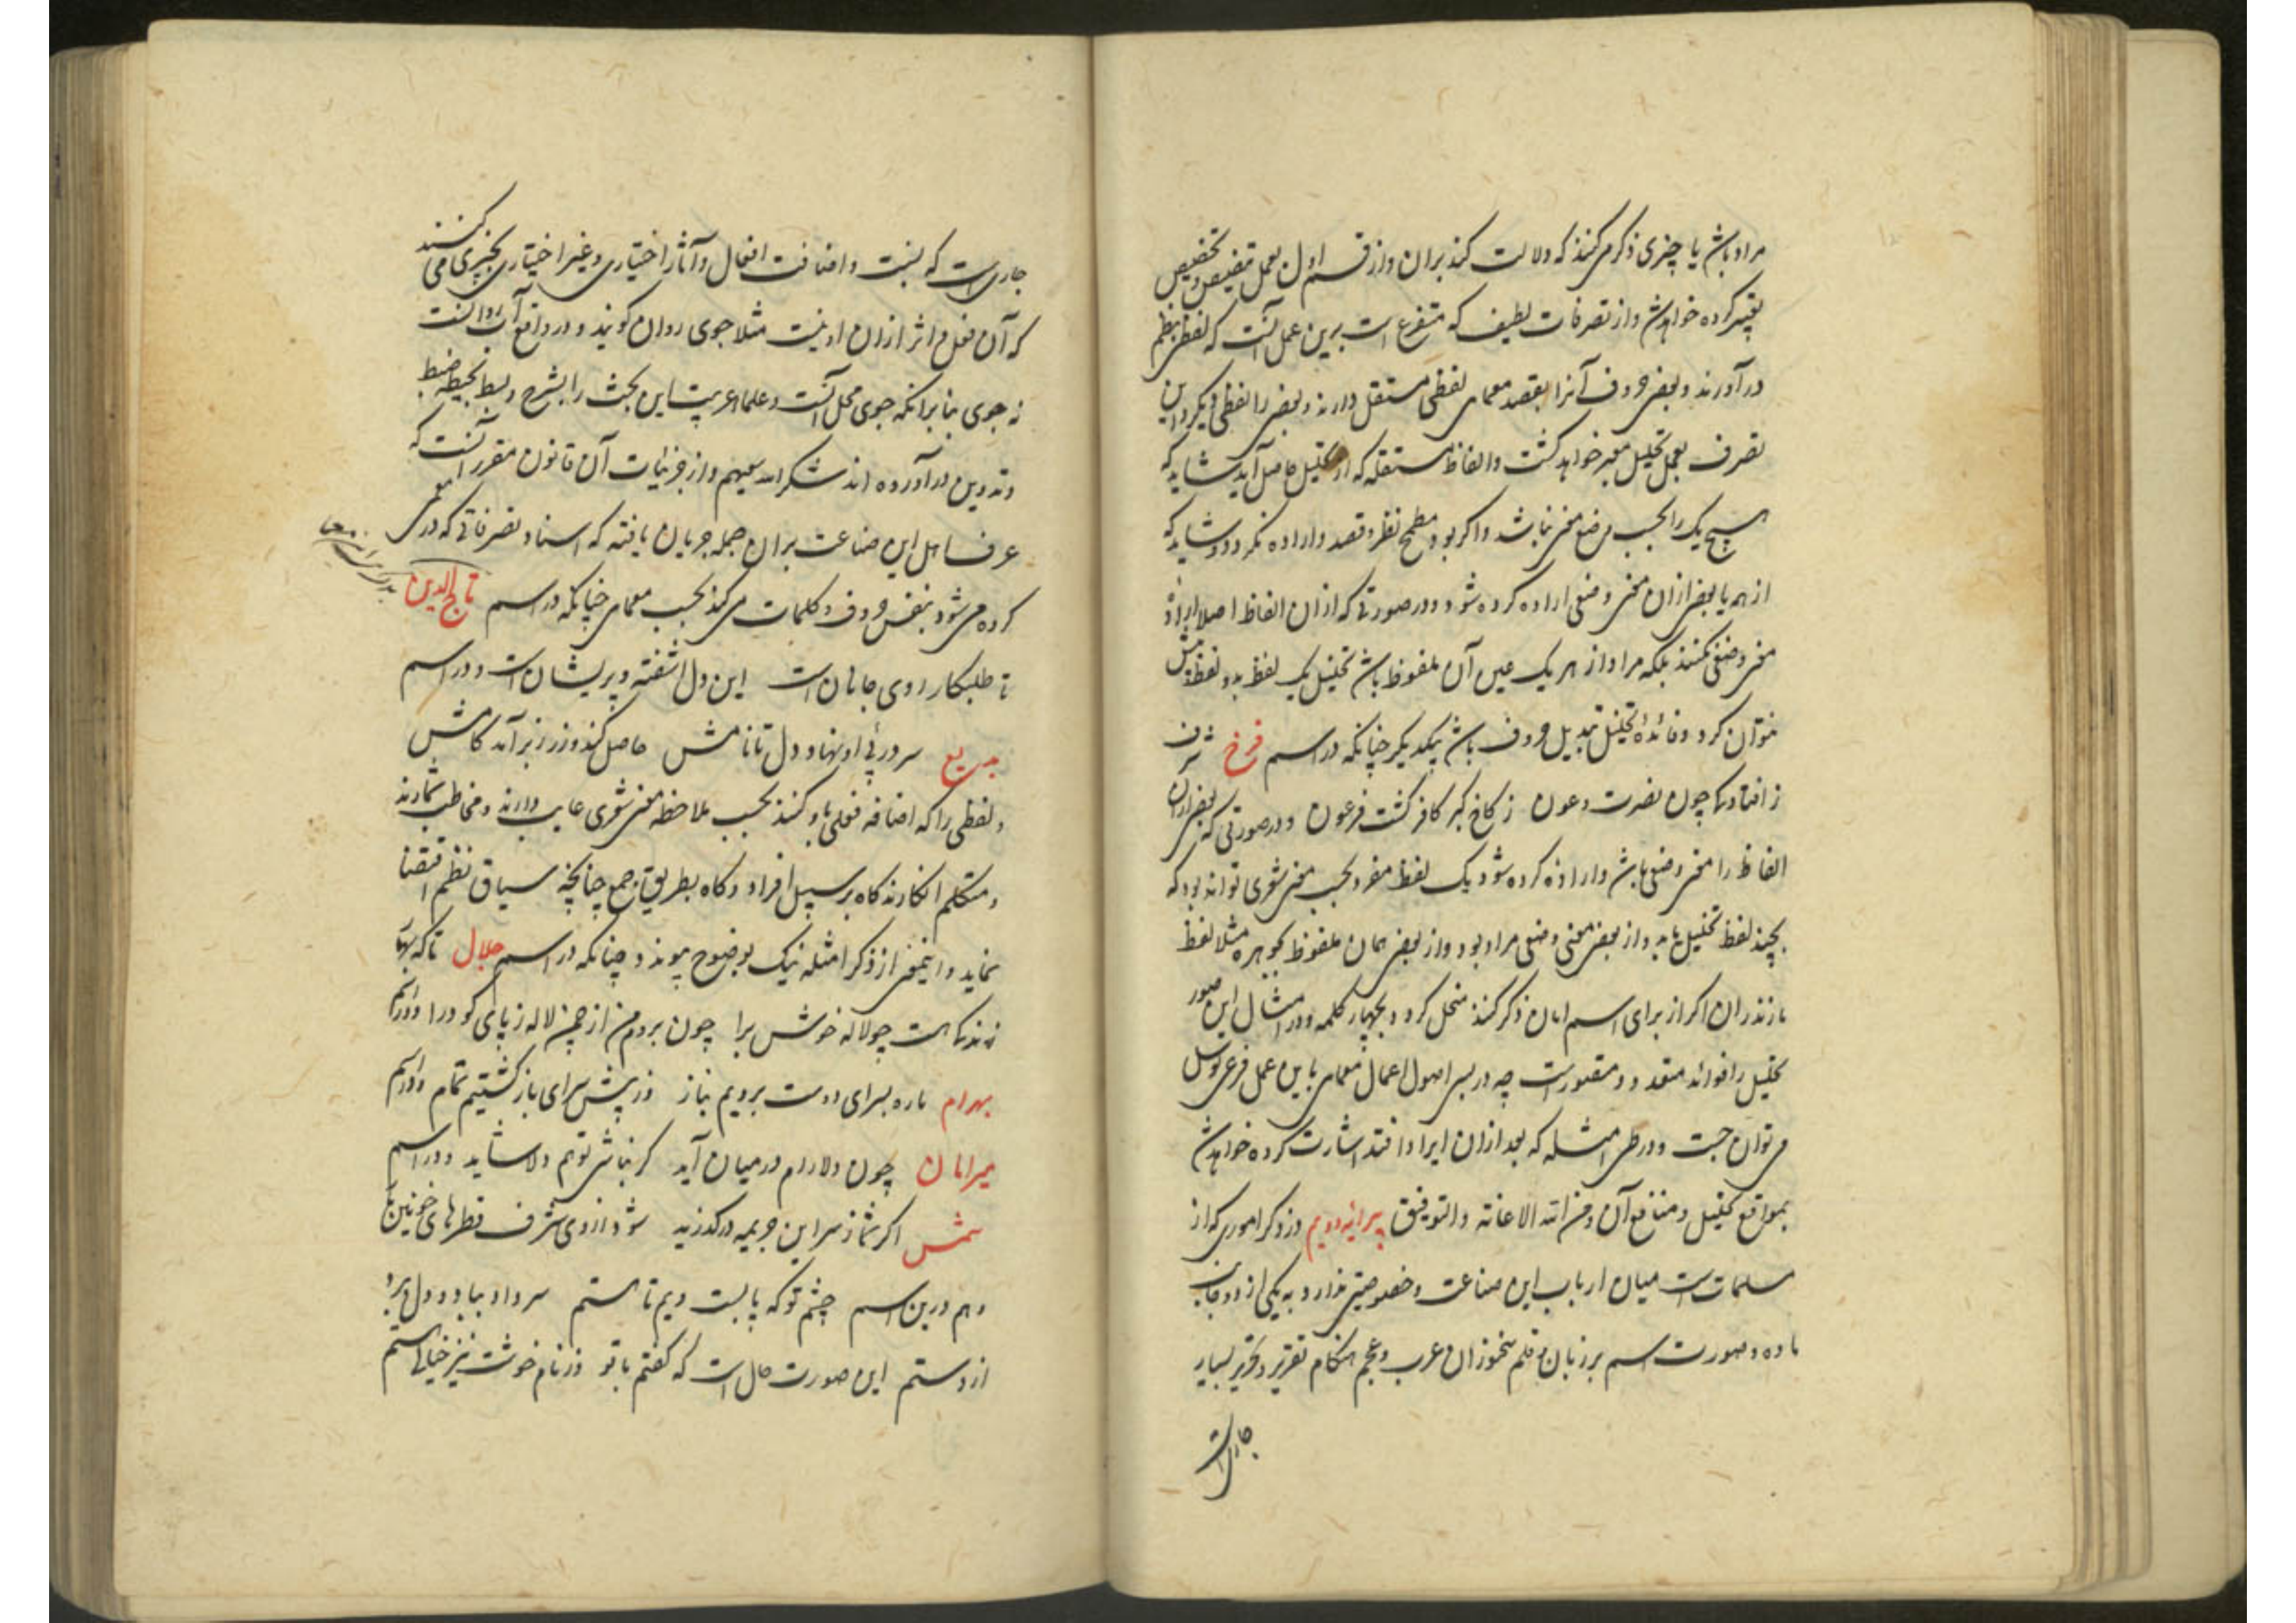 مراد باشد یا چیزی ذکر می کنند که دلالت کند بران و از قسم اول بعمل تنصیص و تخصیص
تعبیر کرده خواهد شد و از تصرفات لطیف که متفرع است برین عمل آنست که لفظی بنظم
در آورند و بعضی حروف آنرا بقصد معمای لفظی مستقل دارند و بعضی را لفظی دیگر و این
تصرف بعمل تحلیل معبر خواهد گشت و الفاظ مستقله که از تحلیل حاصل آید شاید که
هیچ یک را بحسب وضع معنی نباشد و اگر بود مطمح نظر و قصد و اراده نگردد و شاید که
از همه یا بعضی ازان معنی وضعی اراده کرده شود و در صورتی که ازان الفاظ اصلا اراده
معنی وضعی نکنند بلکه مراد از هر یک عین آن ملفوظ باشد تحلیل یک لفظ بدو لفظ بیش
نتوان کرد و فائده تحلیل تبدیل حروف باشد بیکدیگر چنانکه در اسم فرخ شرف
ز افتاد چون نصرت و عون ز کاخ کبر کافر گشت فرعون و در صورتی که بعضی ازان
الفاظ را معنی وضعی باشد و اراده کرده شود یک لفظ مفرد بحسب معنی شعری تواند بود که
بچند لفظ تحلیل یابد و از بعضی معنی وضعی مراد بود و از بعضی همان ملفوظ کوهره مثلا لفظ
مازندران اگر از برای اسم امان ذکر کنند منحل گردد بچهار کلمه و در امثال این صور
تحلیل را فوائد متعدد و متصورست چه در بسی اصول اعمال معمای باین عمل فرعی توسل
می توان جست و در طی امثله که بعد ازان ایراد افتد اشارت کرده خواهد شد
بمواقع تحلیل و منافع آن و من الله الاعانه والتوفیق پیرایه دویم در ذکر اموری که از
مسلمات است میان ارباب این صناعت و خصوصیتی ندارد به یکی از دو جانب
ماده و صورت اسم بر زبان و قلم سخنوران عرب و عجم هنگام تقریر و تحریر بسیار
جاری است
جاری است که نسبت و اضافت افعال و آثار اختیاری و غیر اختیاری بچیزی می کنند
که آن فعل و اثر ازان او نیست مثلا جوی روان گویند و در واقع آب روانست
نه جوی بنابر انکه جوی محل آنست و علماء عربیت این بحث را بشرح و بسط بحیطه ضبط
و تدوین در آورده اند شکر الله سعیهم و از جزئیات آن قانون مقرر آنست که
عرف اهل این صناعت بران جمله جریان یافته که اسناد تصرفاتی که در معمی
کرده می شود بنفس حروف و کلمات می کنند بحسب معمای چنانکه در اسم تاج الدین
تا طلبکار روی جانان است این دل آشفته و پریشان است و در اسم
بدیع سر در پی او نهاد دل تا نامش حاصل کند و زر ز بر آمد کامش
و لفظی را که اضافه فعلی باو کنند بحسب ملاحظه معنی شعری غایب دارند و مخاطب شمارند
و متکلم انگارند گاه بر سبیل افراد و گاه بطریق جمع چنانچه سیاق نظم اقتضا
نماید و این معنی از ذکر امثله نیک بوضوح پیوندد چنانکه در اسم جلال تا که بهار
زنده است چو لاله خوش برا چون بردم من از چمن لاله ز پای کو درا و در اسم
بهرام ماره بسرای دوست بردیم نیاز وز پیش سرای باز گشتیم تمام و در اسم
میرامان چون دلارام در میان آید گر نباشی تو هم دلا شاید و در اسم
شمس اگر شما ز سر این جریمه در گذرید شود از روی شرف قطرهای خونین
و هم درین اسم چشم تو که پا بست ویم تا هستم سر داد بباد و دل ببرد
از دستم این صورت حال است که گفتم با تو وز نام خوشت نیز خیالی بستم